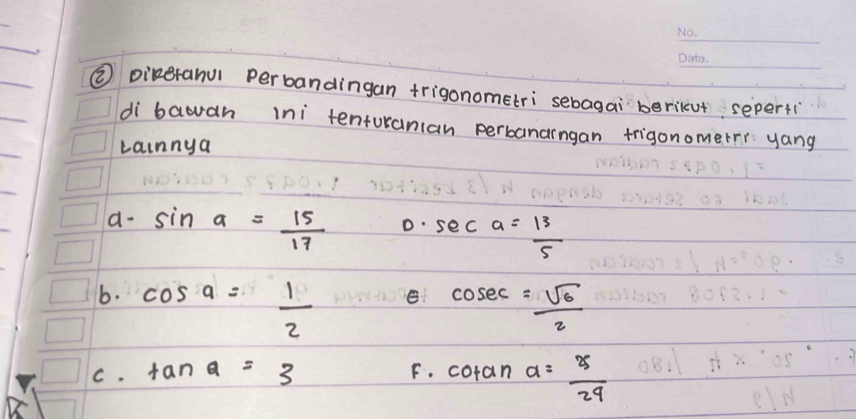 No.
Date.
② Diketahui perbandingan trigonometri sebagai berikut seperti
di bawah ini tentukanlah perbandingan trigonometri yang
Lainnya
a. sin a = 15/17 D. sec a = 13/5
b. cos a = 1/2 e cosec = √6/2
c. tan a = 3 F. cotan a = 25/24